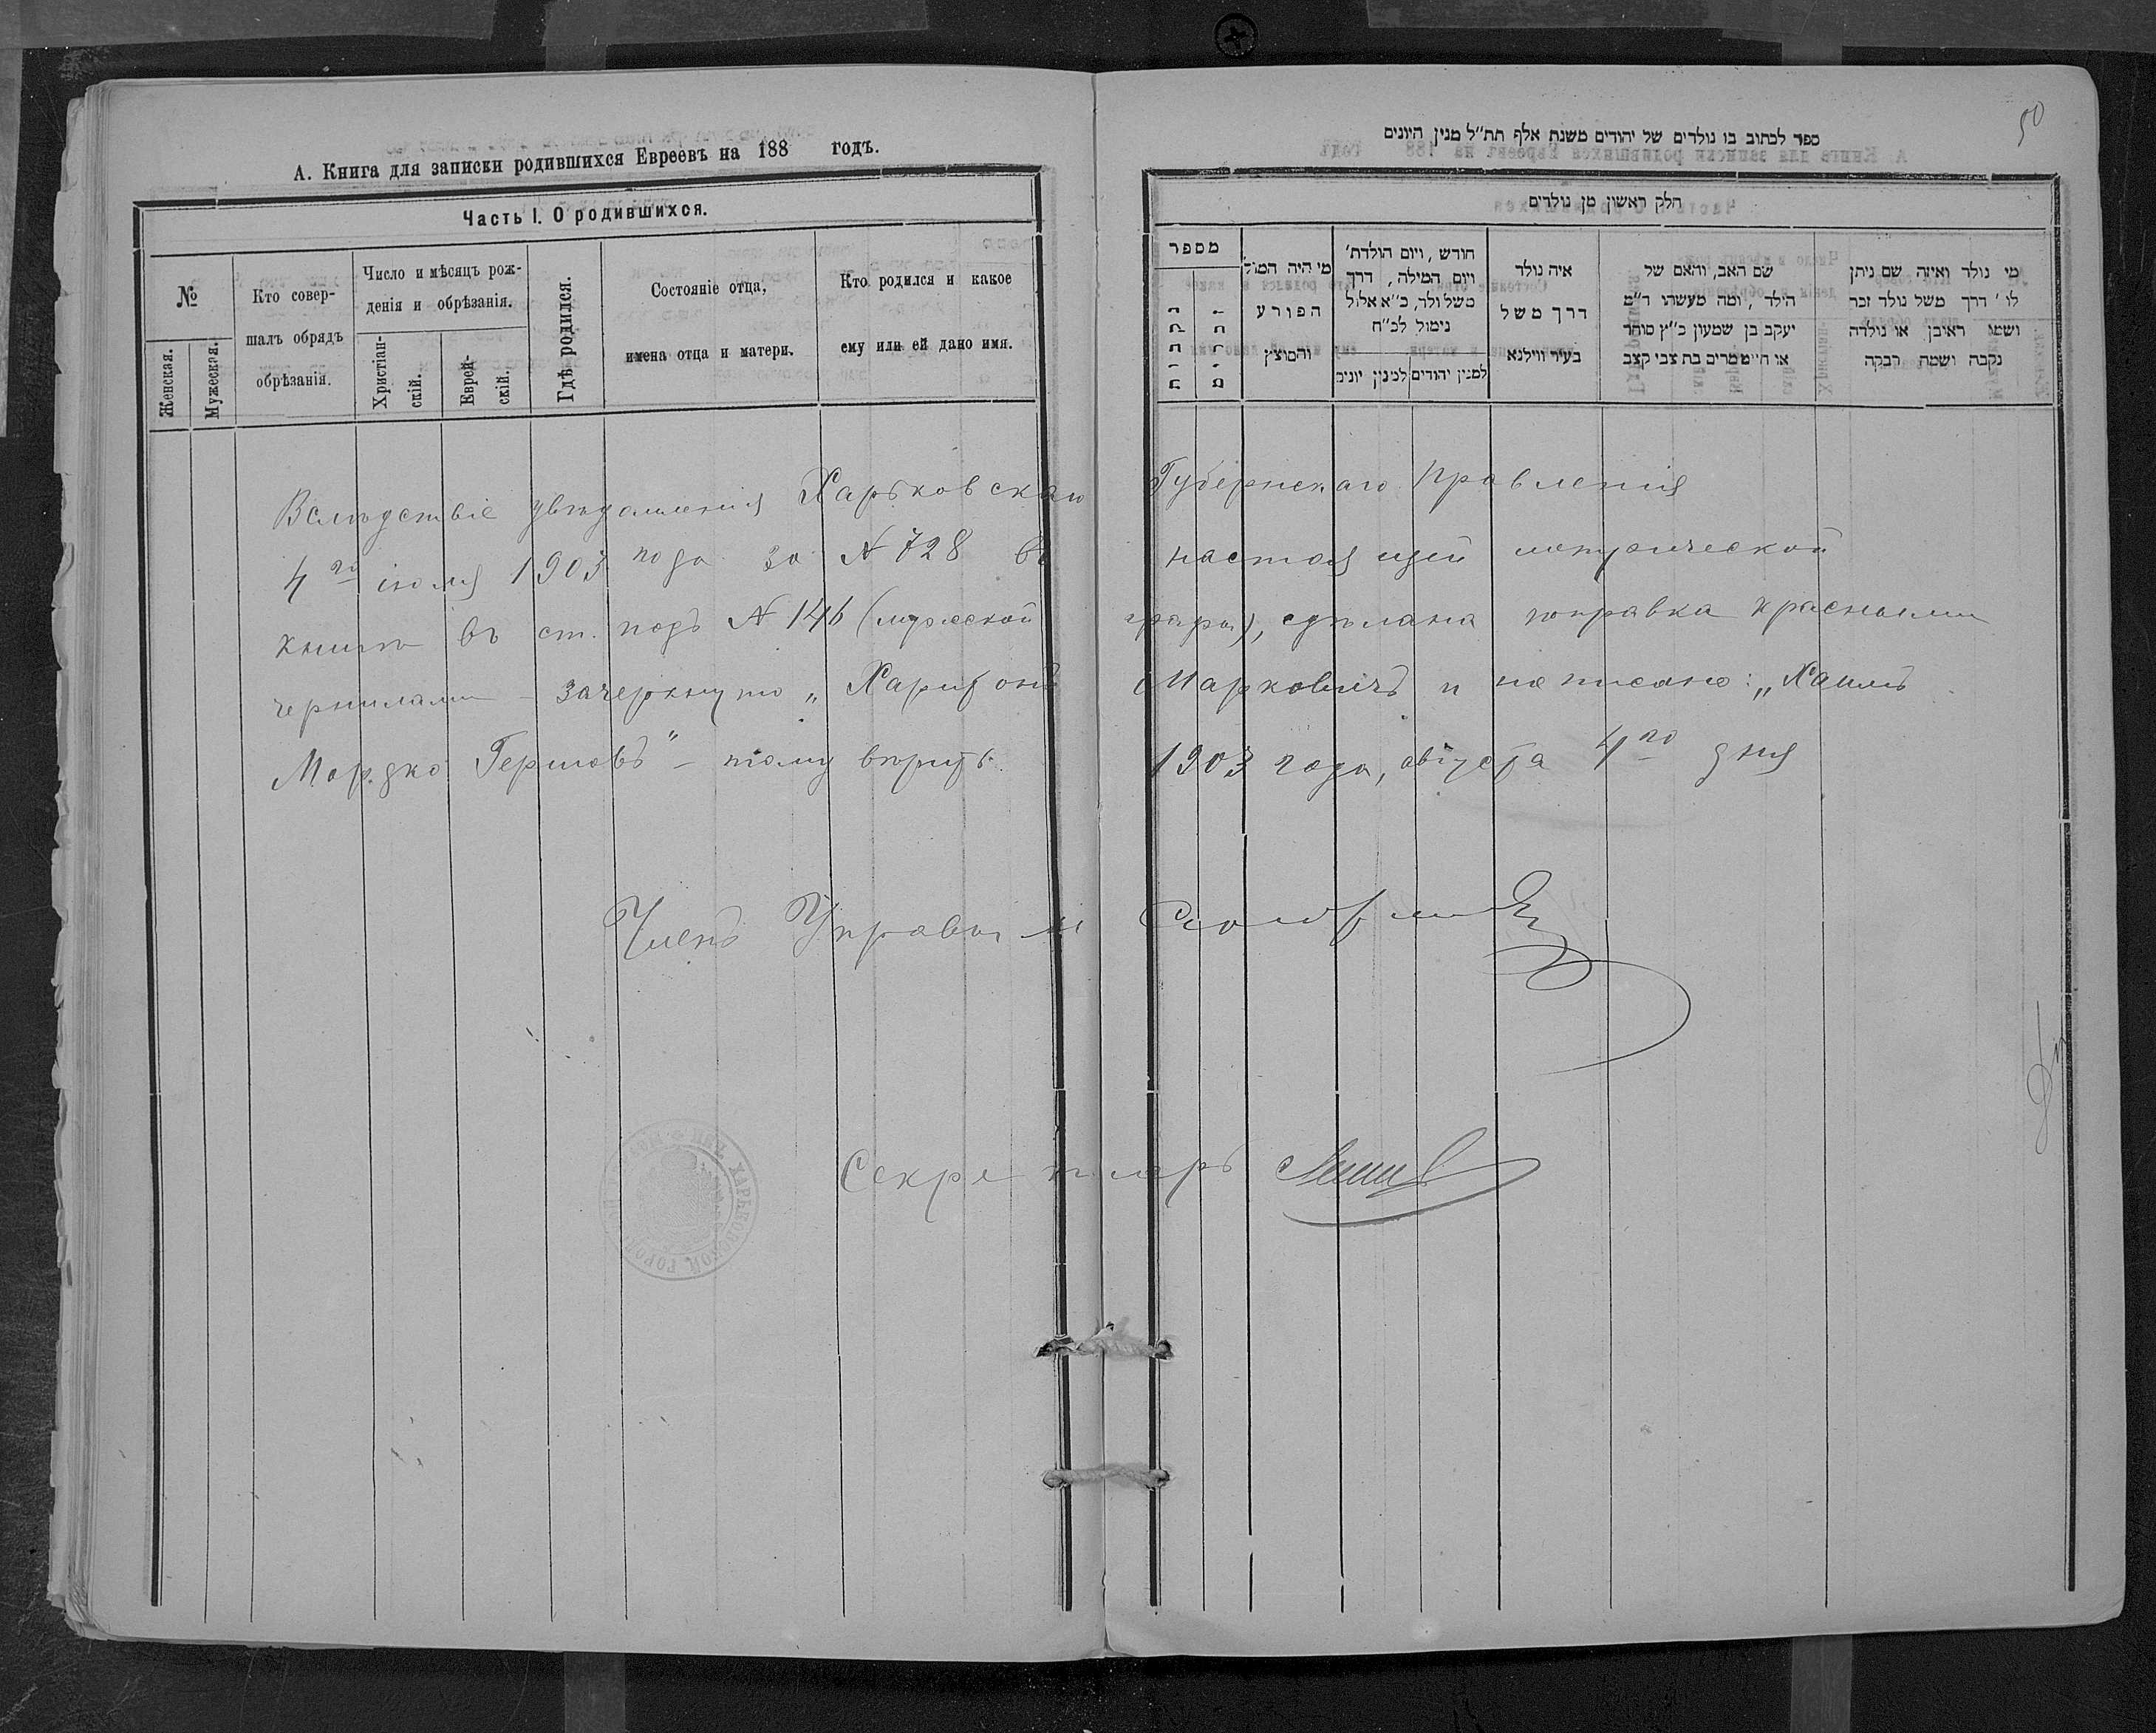 А. Книга для записки родившихся Евреевъ на 188 годъ.
Часть I. О родившихся.
№
Женская.
Мужеская.
Кто совер-
шалъ обрядъ
обрѣзанія.
Число и мѣсяцъ рож-
денія и обрѣзанія.
Христіан-
скій.
Еврей-
скій.
Гдѣ родился.
Состояніе отца,
имена отца и матери.
Кто родился и какое
ему или ей дано имя.
50
ספר לכתוב בו נולדים של יהודים משנת אלף תת״ל מנין היונים
חלק ראשון מן נולדים
מספר
נקבות
זכרים
מי היה המול
הפורע
והמוצץ
חודש, ויום הולדת׳
ויום המילה, דרך
משל ולד, כ״א אלול
נימול לכ״ח
למנין יהודים
למנין יונים
איה נולד
דרך משל
בעיר ווילנא
שם האב, והאם של
הילד, ומה מעשהו ד״מ
יעקב בן שמעון כ״ץ סוחר
או חייט מרים בת צבי קצב
מי נולד ואיזה שם ניתן
לו ׳ דרך משל נולד זכר
ושמו ראיבן או נולדה
נקבה ושמה רבקה
Вслѣдствіе увѣдомленія Харьковскаго Губернскаго Правленія
4го іюля 1903 года за № 728 въ настоящей метрической
книгѣ въ ст. подъ № 146 (мужеской графы), сдѣлана поправка красными
чернилами – зачеркнуто „Харитонъ Марковичъ и написано: „Хаимъ
Мордко Гершовъ" – тому вѣрить. 1903 года, августа 4го дня
Членъ Управы
Секретарь